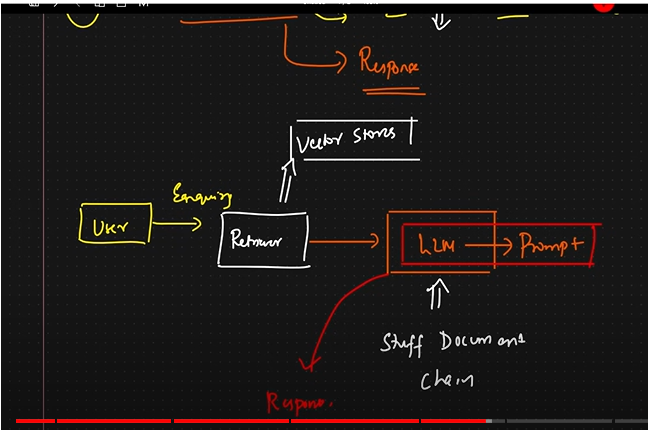 Response
Vector Stores
Enquiry
User
Retriever
LLM
Prompt
Stuff Document
Chain
Response.